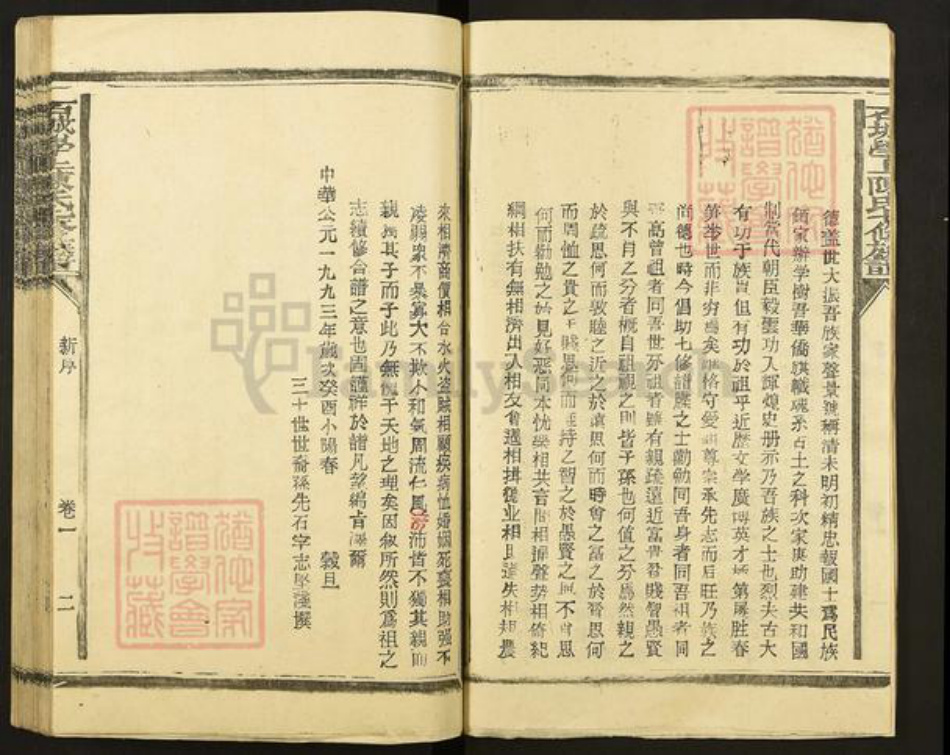 德蓋世大振吾族家聲景號稱清末明初精忠報國士爲民族
鈿家辦学樹吾華僑旗幟魂系古土之科次家庚助建共和國
制當代朝臣毅靈功入輝煌史册示乃吾族之士也烈夫古大
有功于族豈但有功於祖乎近歷文学廣博英才第屢胜春
笋举世而非穷焉矣格守爱尊宗承先志而启旺乃族之
尚德也時今倡助七修譜牒之士勸勉同吾身者同吾祖者同
高曾祖者同吾世外祖者雖有親疏遠近富貴貧賤智愚賢
與不肖之分者概自祖視之則皆子孫也何值之分焉然親之
於疏思何而敦睦之近之於遠思何而時會之富之於貧思何
而周恤之貴之于賤思何而維持之智之於愚賢之不肖思
何而勸勉之始見好惡同本忧樂相共言聞相聲势相倚紀
綱相扶有無相濟出入相友會遇相揖德业相過失相規農
來相濟商價相合水火盗賊相顧疾病恤婚姻死喪相助强不
凌弱衆不暴寡大不欺小和氣周流仁風沛皆不獨其親而
親其子而子此乃無愧于天地之理矣因叙所然則爲祖之
志續修合譜之意也固謹祥於諸凡望綿肯爾
中華公元一九九三年歲次癸酉小陽春 穀旦
三十世世裔孫先石字志堅謹撰
新序
卷一
二